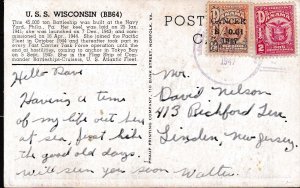 U. S. S. WISCONSIN (BB64)
This 45,000 ton Battleship was built at the Navy
Yard, Phila., Pa. Her keel was laid on 25 Jan.
1941; she was launched on 7 Dec., 1943; and com-
missioned on 16 Apr., 1944. She joined the Pacific
Fleet in October 1944 and thereafter took part in
every Fast Carrier Task Force operation until the
end of hostilities, coming to anchor in Tokyo Bay
on 5 Sept., 1945. She is the Flag Ship of Com-
mander Battleships-Cruisers, U. S. Atlantic Fleet.
POST
CANCER
B/ 0.01
1947
2
1947
Hello Dave
Having a time
of my life out here
at sea, just like
the good old days.
will see you soon Walter
Mr.
David Nelson
413 Richford Terr.
Linden, New Jersey.
PHILIP PRINTING COMPANY, 110 BANK STREET, NORFOLK, VA.